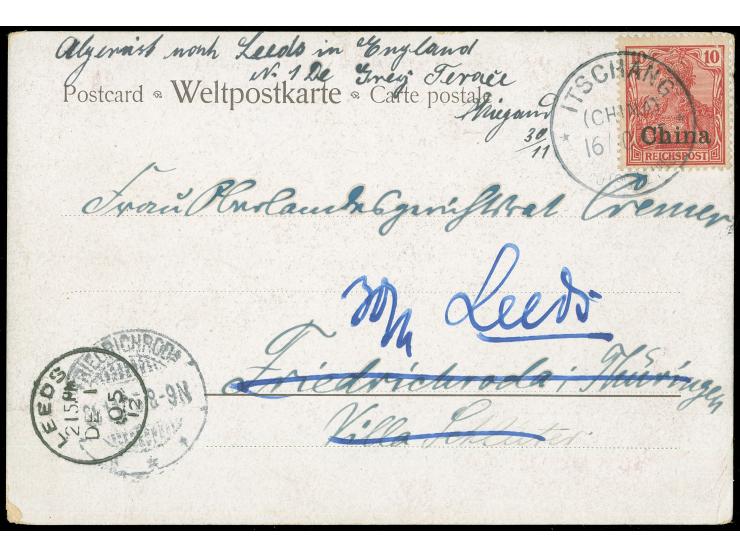 Algerüst nach Leeds in England
N. 1 De Grey Terace
Postcard Weltpostkarte Carte postale
Wiegand
30/11
10
China
REICHSPOST
ITSCHANG
(CHINA)
16/
Frau Oberlandesgerichtsrat Cremer
30/11 Leeds
Friedrichroda i. Thüringen
Villa Schlüter
FRIEDRICHRODA
8-9N
LEEDS
2 15 PM
DE 1
05
12